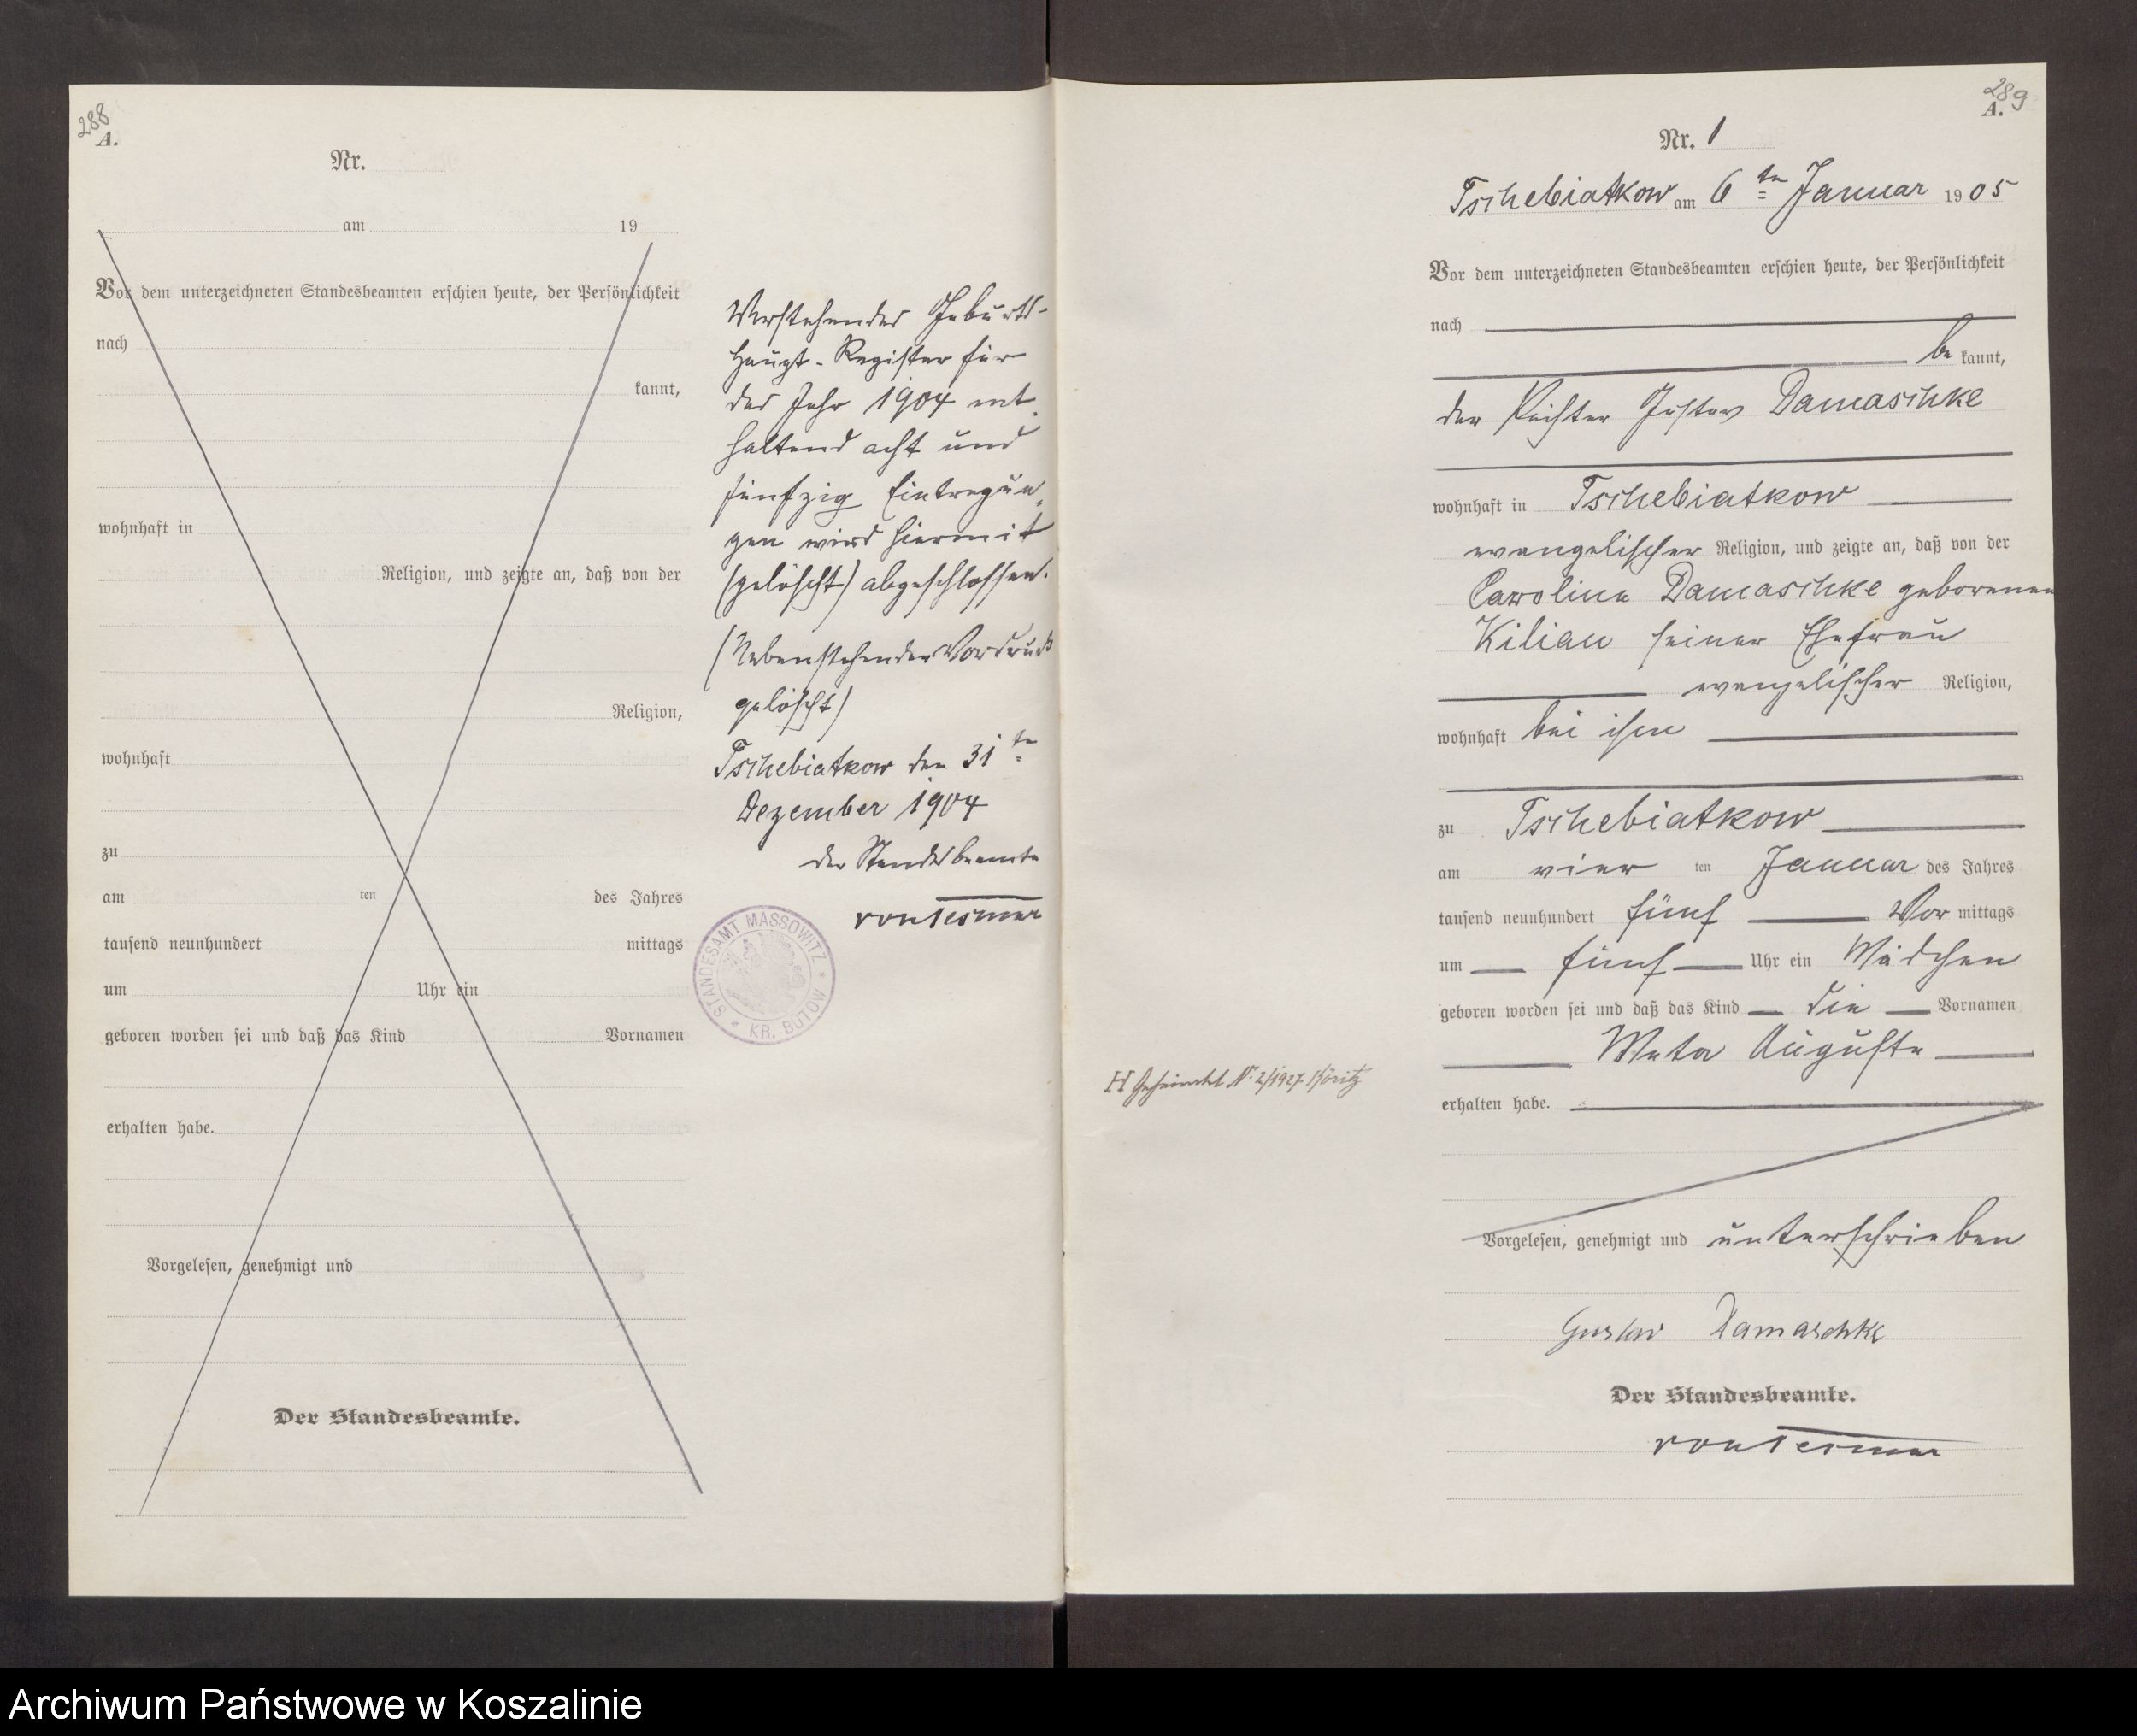 288
A.
Nr.
am 19
Vor dem unterzeichneten Standesbeamten erschien heute, der Persönlichkeit
nach
kannt,
wohnhaft in
Religion, und zeigte an, daß von der
Religion,
wohnhaft
zu
am ten des Jahres
tausend neunhundert mittags
um Uhr ein
geboren worden sei und daß das Kind Vornamen
erhalten habe.
Vorgelesen, genehmigt und
Der Standesbeamte.
Vorstehendes Geburts-
Haupt-Register für
das Jahr 1904 ent-
haltend acht und
fünfzig Eintragun-
gen wird hiermit
(gelöscht) abgeschlossen.
(Nebenstehender Vordruck
gelöscht)
Tschebiatkow den 31ten
Dezember 1904
der Standesbeamte
STANDESAMT MASSOWITZ
KR. BÜTOW
289
A.
Nr. 1
Tschebiatkow am 6ten Januar 1905
Vor dem unterzeichneten Standesbeamten erschien heute, der Persönlichkeit
nach
be kannt,
der Gustav Damaschke
wohnhaft in Tschebiatkow
evangelischer Religion, und zeigte an, daß von der
Caroline Damaschke geborenen
Kilian seiner Ehefrau
evangelischer Religion,
wohnhaft bei ihm
zu Tschebiatkow
am vier ten Januar des Jahres
tausend neunhundert fünf Vor mittags
um fünf Uhr ein Mädchen
geboren worden sei und daß das Kind die Vornamen
Meta Auguste
erhalten habe.
H Geheiratet Nr. 2/1927
Vorgelesen, genehmigt und unterschrieben
Gustav Damaschke
Der Standesbeamte.
Archiwum Państwowe w Koszalinie